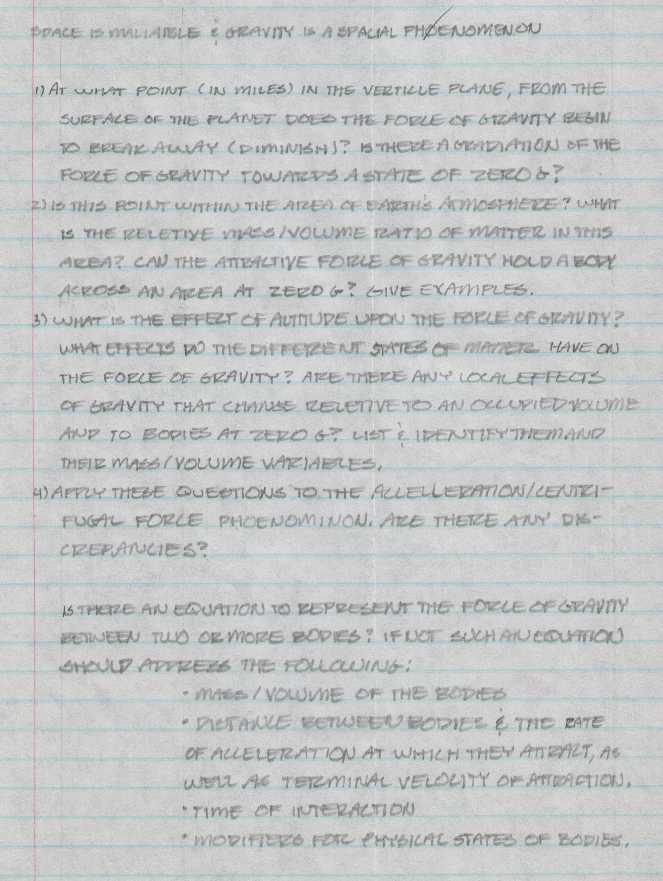 SPACE IS MALIABLE & GRAVITY IS A SPACIAL PHOENOMENON
1) AT WHAT POINT (IN MILES) IN THE VERTICLE PLANE, FROM THE
SURFACE OF THE PLANET DOES THE FORCE OF GRAVITY BEGIN
TO BREAK AWAY (DIMINISH)? IS THERE A GRADIATION OF THE
FORCE OF GRAVITY TOWARDS A STATE OF ZERO G?
2) IS THIS POINT WITHIN THE AREA OF EARTH'S ATMOSPHERE? WHAT
IS THE RELETIVE MASS/VOLUME RATIO OF MATTER IN THIS
AREA? CAN THE ATTRACTIVE FORCE OF GRAVITY HOLD A BODY
ACROSS AN AREA AT ZERO G? GIVE EXAMPLES.
3) WHAT IS THE EFFECT OF ALTITUDE UPON THE FORCE OF GRAVITY?
WHAT EFFECTS DO THE DIFFERENT STATES OF MATTER HAVE ON
THE FORCE OF GRAVITY? ARE THERE ANY LOCAL EFFECTS
OF GRAVITY THAT CHANGE RELETIVE TO AN OCCUPIED VOLUME
AND TO BODIES AT ZERO G? LIST & IDENTIFY THEM AND
THEIR MASS/VOLUME VARIABLES.
4) APPLY THESE QUESTIONS TO THE ACCELLERATION/CENTRI-
FUGAL FORCE PHOENOMINON. ARE THERE ANY DIS-
CREPANCIES?
IS THERE AN EQUATION TO REPRESENT THE FORCE OF GRAVITY
BETWEEN TWO OR MORE BODIES? IF NOT SUCH AN EQUATION
SHOULD ADDRESS THE FOLLOWING:
• MASS/VOLUME OF THE BODIES
• DISTANCE BETWEEN BODIES & THE RATE
OF ACCELERATION AT WHICH THEY ATTRACT, AS
WELL AS TERMINAL VELOCITY OF ATTRACTION.
• TIME OF INTERACTION
• MODIFIERS FOR PHYSICAL STATES OF BODIES.